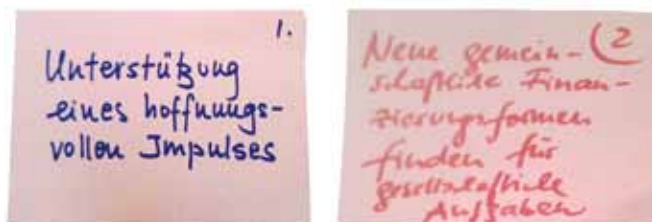 1.
Unterstützung
eines hoffnungs-
vollen Impulses
2
Neue gemein-
schaftliche Finan-
zierungsformen
finden für
gesellschaftliche
Aufgaben